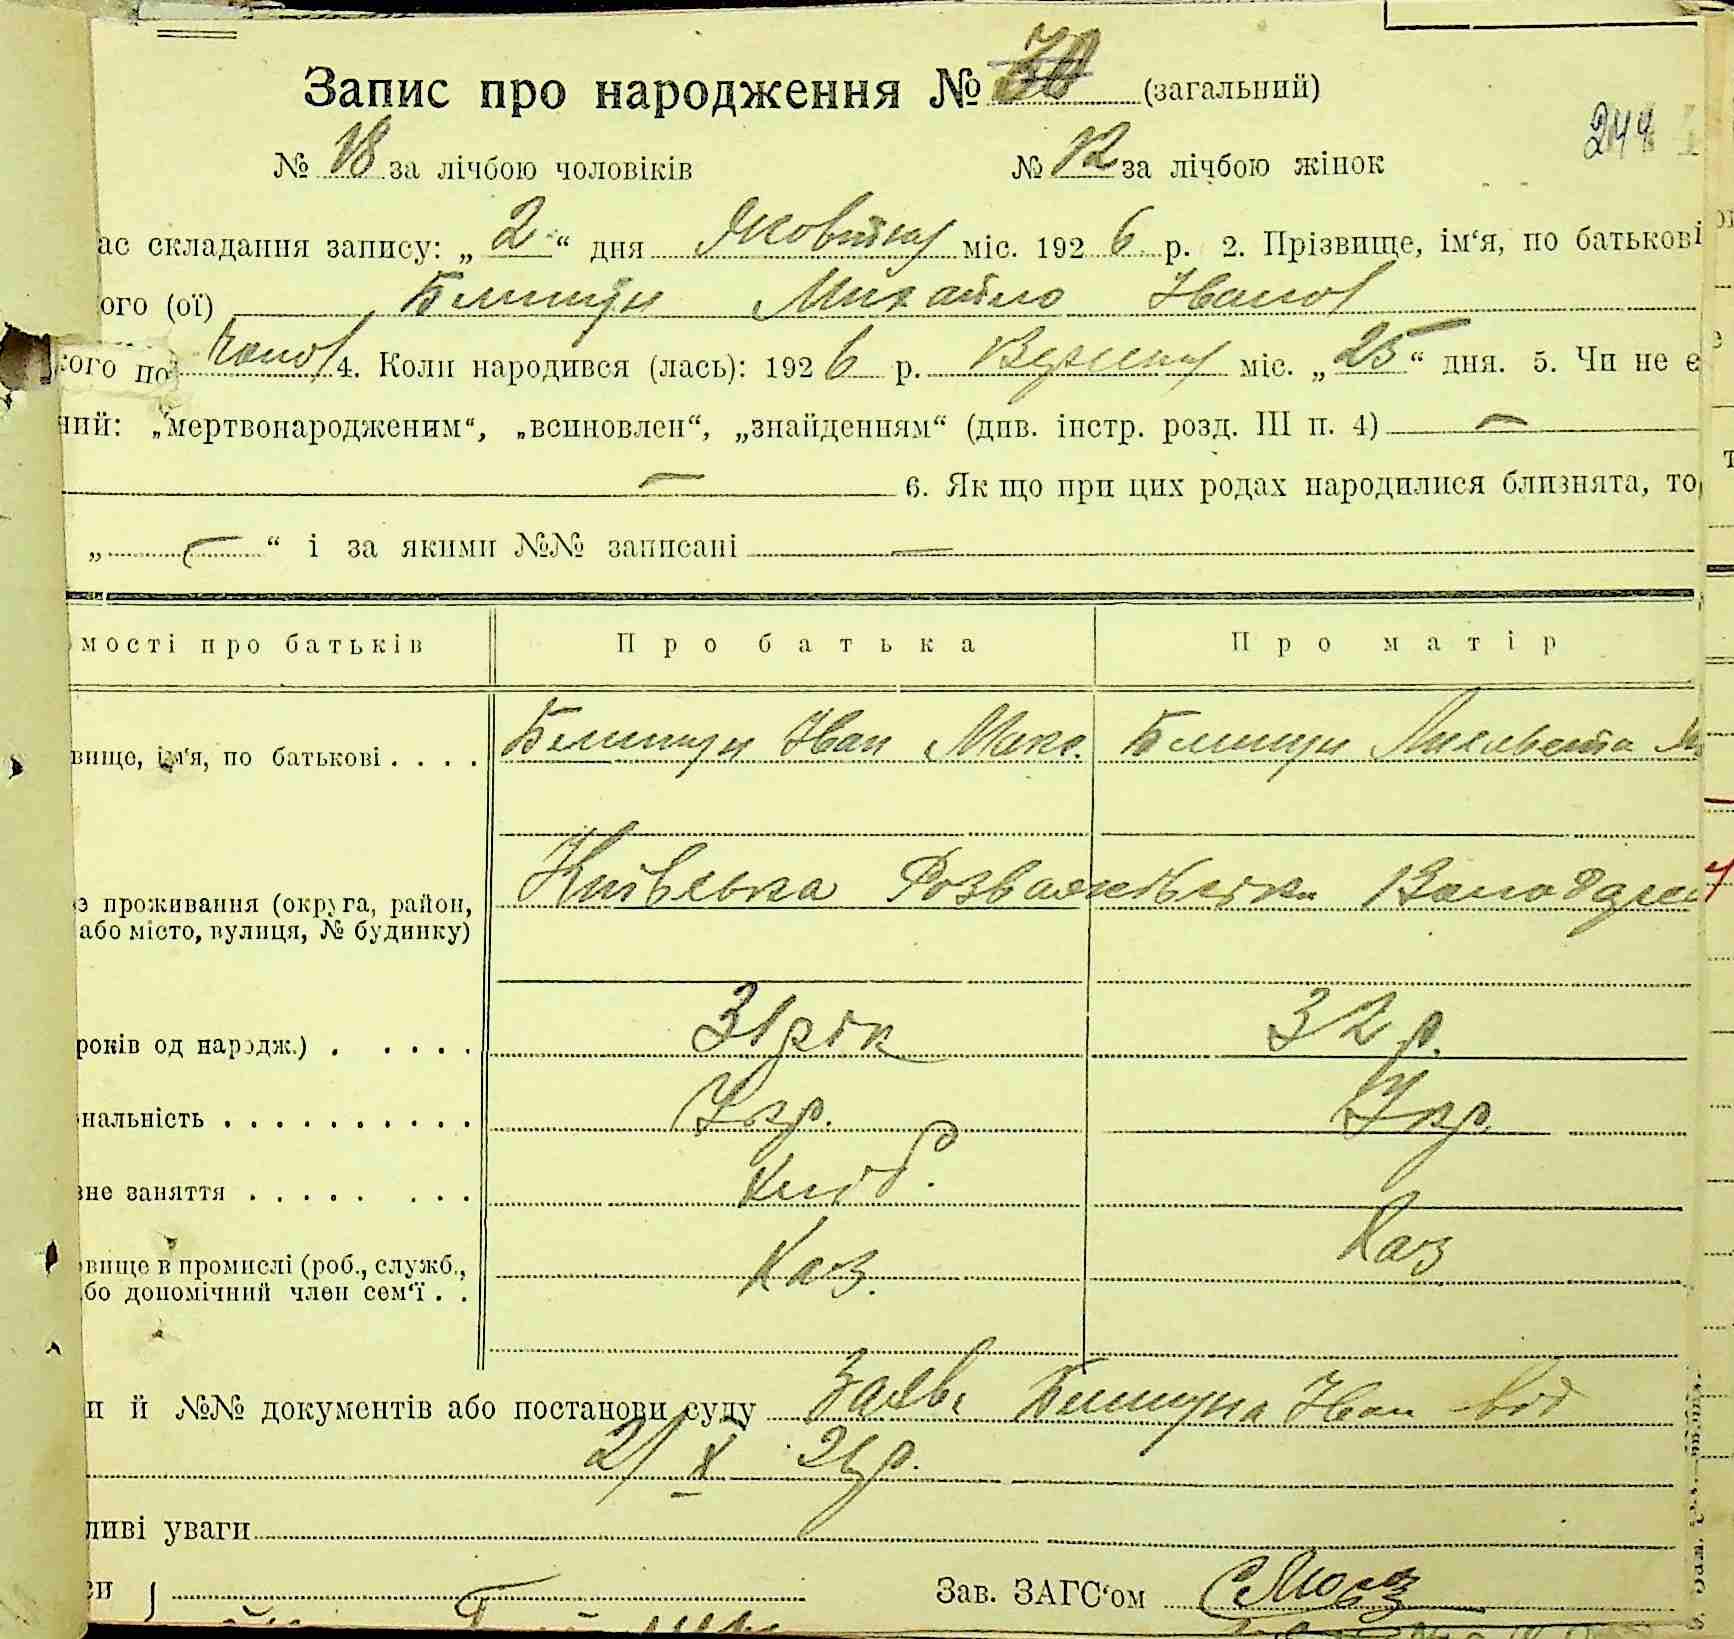 Запис про народження № 30 (загальний)
244
№ 18 за лічбою чоловіків № 12 за лічбою жінок
ас складання запису: „2“ дня Жовтня міс. 1926 р. 2. Прізвище, ім‘я, по батькові
ого (ої) Михайло Іванов
кого по Чолов 4. Коли народився (лась): 1926 р. Вересня міс. „25“ дня. 5. Чи не є
ний: „мертвонародженим“, „всиновлен“, „знайденням“ (див. інстр. розд. III п. 4) —
— 6. Як що при цих родах народилися близнята, то
„ — “ і за якими №№ записані —
мості про батьків Про батька Про матір
вище, ім‘я, по батькові . . . . Іван Макс.
Київська Розважівська Володарка
э проживання (округа, район,
або місто, вулиця, № будинку)
років од народж.) . . . . . 31 рік 32 р.
нальність . . . . . . . . . . Укр. Укр.
вне заняття . . . . . . . . Хліб.
вище в промислі (роб., служб., Хаз. Хаз
бо допомічний член сем‘ї . .
и й №№ документів або постанови суду Заява Іван від
2/X 26 р.
ливі уваги
си Зав. ЗАГС‘ом